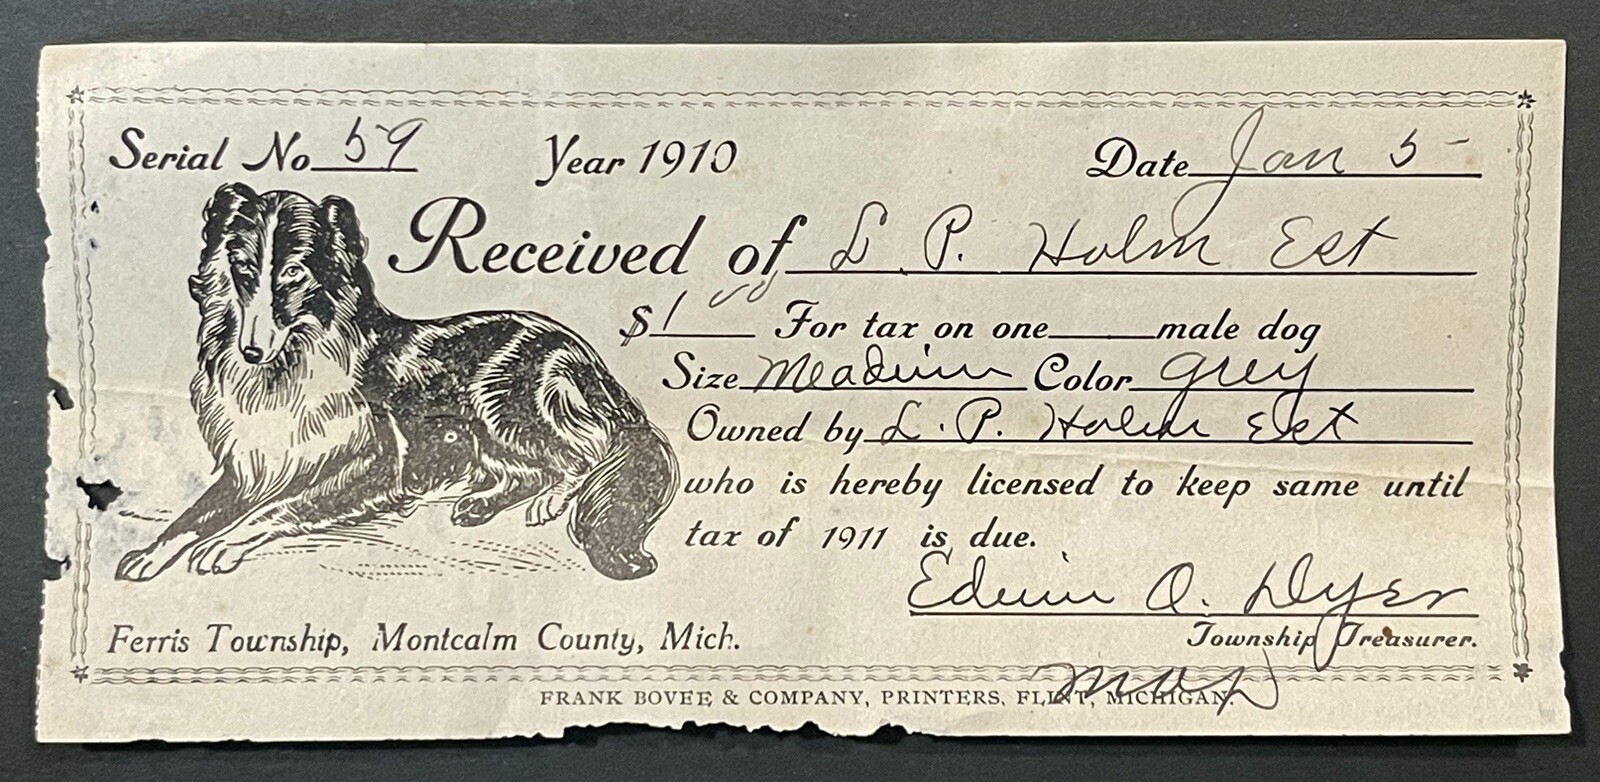 Serial No 59 Year 1910 Date Jan 5
Received of L. P. Holm Est
$1 00 For tax on one male dog
Size Meadium Color grey
Owned by L. P. Holm Est
who is hereby licensed to keep same until
tax of 1911 is due.
Edwin O. Dyer
Ferris Township, Montcalm County, Mich. Township Treasurer.
FRANK BOVEE & COMPANY, PRINTERS, FLINT, MICHIGAN.